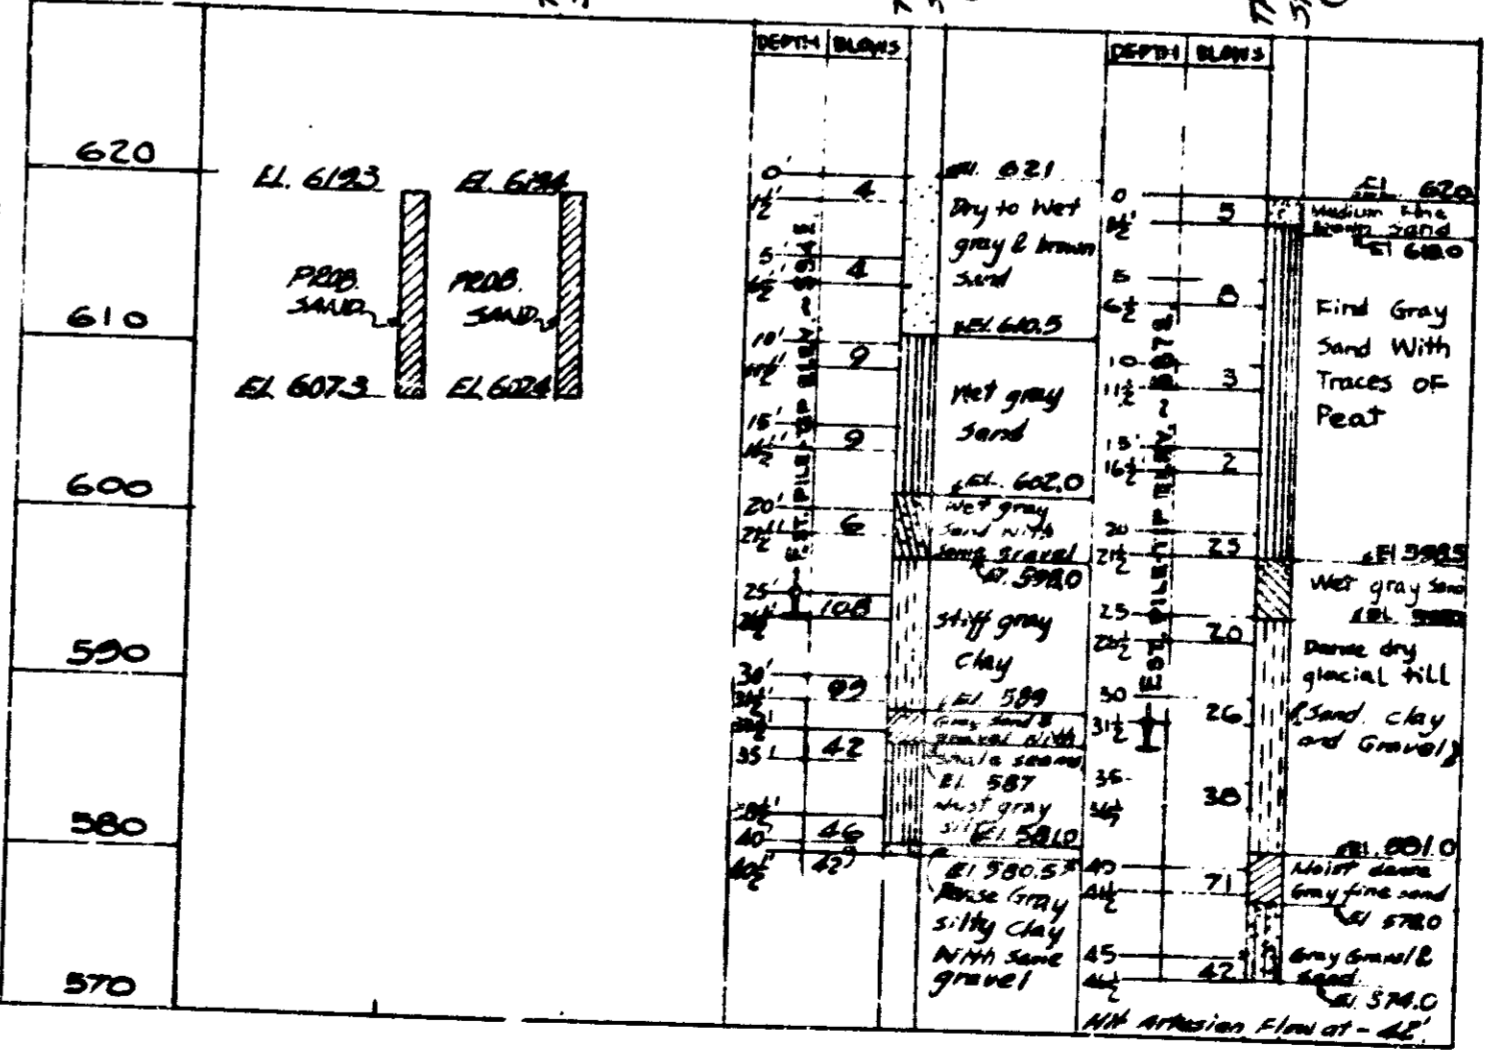 620
610
600
590
580
570
EL. 6193
EL. 6194
PROB.
SAND
PROB.
SAND
EL 6073
EL 6024
DEPTH BLOWS
0'
4
1½'
5'
4
6½'
10'
9
11½'
15'
9
16½'
20'
6
21½'
25'
108
30'
99
42
35'
46
40
40½'
EST. PILE TIP ELEV. ~
El. 621
Dry to Wet
gray & brown
sand
El. 610.5
Wet gray
Sand
El. 602.0
Wet gray
Sand with
some gravel
El. 598.0
stiff gray
Clay
El. 589
Gray Sand &
gravel with
seams
El. 587
Moist gray
El. 581.0
El 580.5
Dense Gray
silty clay
With some
gravel
DEPTH BLOWS
0
5
1½'
5
8
6½
10
3
11½
15
2
16½
20
25
21½
25
20
26½
30
26
31½
35
38
36½
40
71
41½
45
42
46½
EST. PILE TIP ELEV. ~
El. 620
Medium Fine
Brown Sand
El 618.0
Find Gray
Sand With
Traces OF
Peat
El 598.5
Wet gray Sand
Dense dry
glacial till
(Sand, clay
and Gravel)
El. 581.0
Moist dense
Gray fine sand
El 578.0
Gray Gravel &
Sand.
El. 574.0
Hit Artesian Flow at - 42'